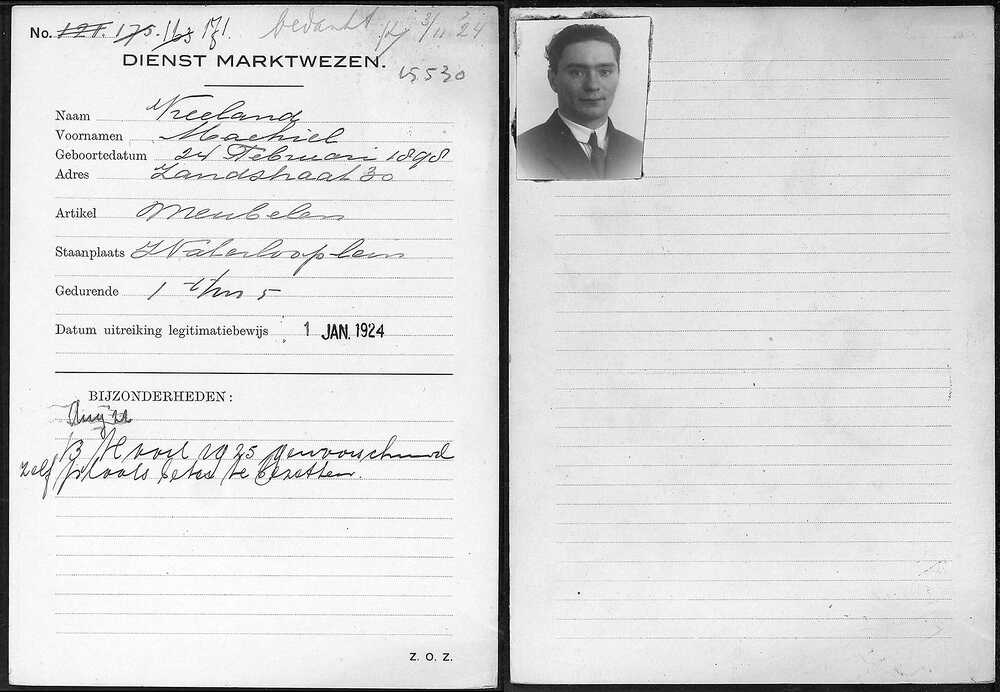 No. 121. 175. 1163 171. bedankt 3/11 '24
DIENST MARKTWEZEN.
15530
Naam Vreeland
Voornamen Machiel
Geboortedatum 24 Februari 1898
Adres Zandstraat 30
Artikel Meubelen
Staanplaats Waterlooplein
Gedurende 1 t/m 5
Datum uitreiking legitimatiebewijs 1 JAN. 1924
BIJZONDERHEDEN:
13 1925 gewaarschuwd
zelf plaats te bezetten.
Z. O. Z.